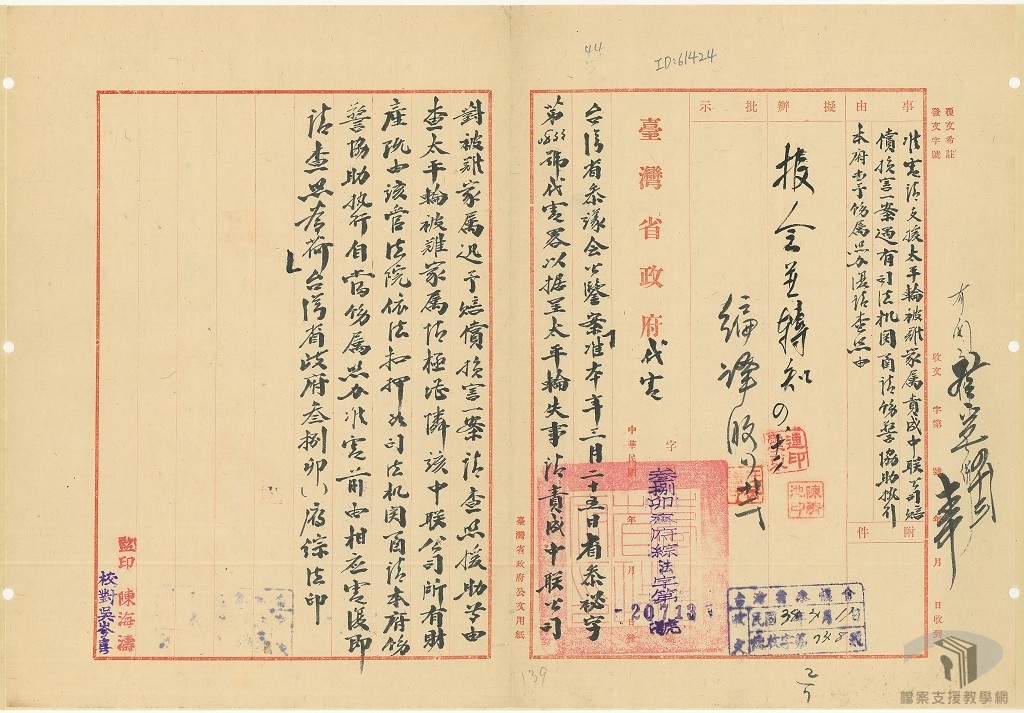 44
ID:61424
事由
擬辦
批示
附件
覆文希註
發文字號
收文 字第 號 年 月 日收到
准電請文援太平輪被難家屬責成中联公司賠
償損害一案遇有司法机関函請飭警協助执行
本府當予飭屬照办復請查照由
授全並轉知
編譯
連印
臺灣省政府代電
字
中華民國 年 月 日
叁捌卯 府綜法字第
20713
號
台湾省参議会公鑒案准本年三月二十五日省参秘字
第0855號代電畧以据呈太平輪失事請責成中联公司
對被难家属迅予賠償損害一案請查照援助等由
查太平輪被难家属情極堪憐該中联公司所有財
產既由該管法院依法扣押如司法机関函請本府飭
警協助执行自當飭属照办准電前由相应電復即
請查照為荷台湾省政府叁捌卯 府綜法印
監印 陳海濤
校對
臺灣省政府公文用紙
民國38年4月11日
139
檔案支援教學網